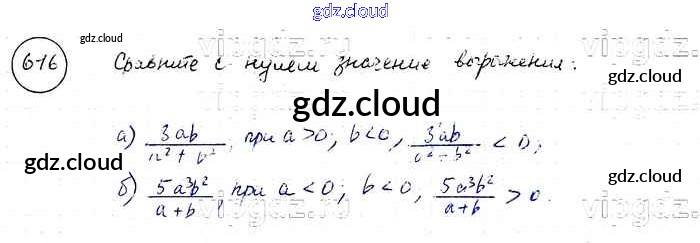 gdz.cloud
616 gdz.cloud Сравните с нулем значение выражения:
gdz.cloud
gdz.cloud
а) 3ab/a²+b², при a>0; b<0, 3ab/a²+b² < 0;
gdz.cloud gdz.cloud
б) 5a³b²/a+b, при a<0; b<0, 5a³b²/a+b > 0.
vipgdz.com